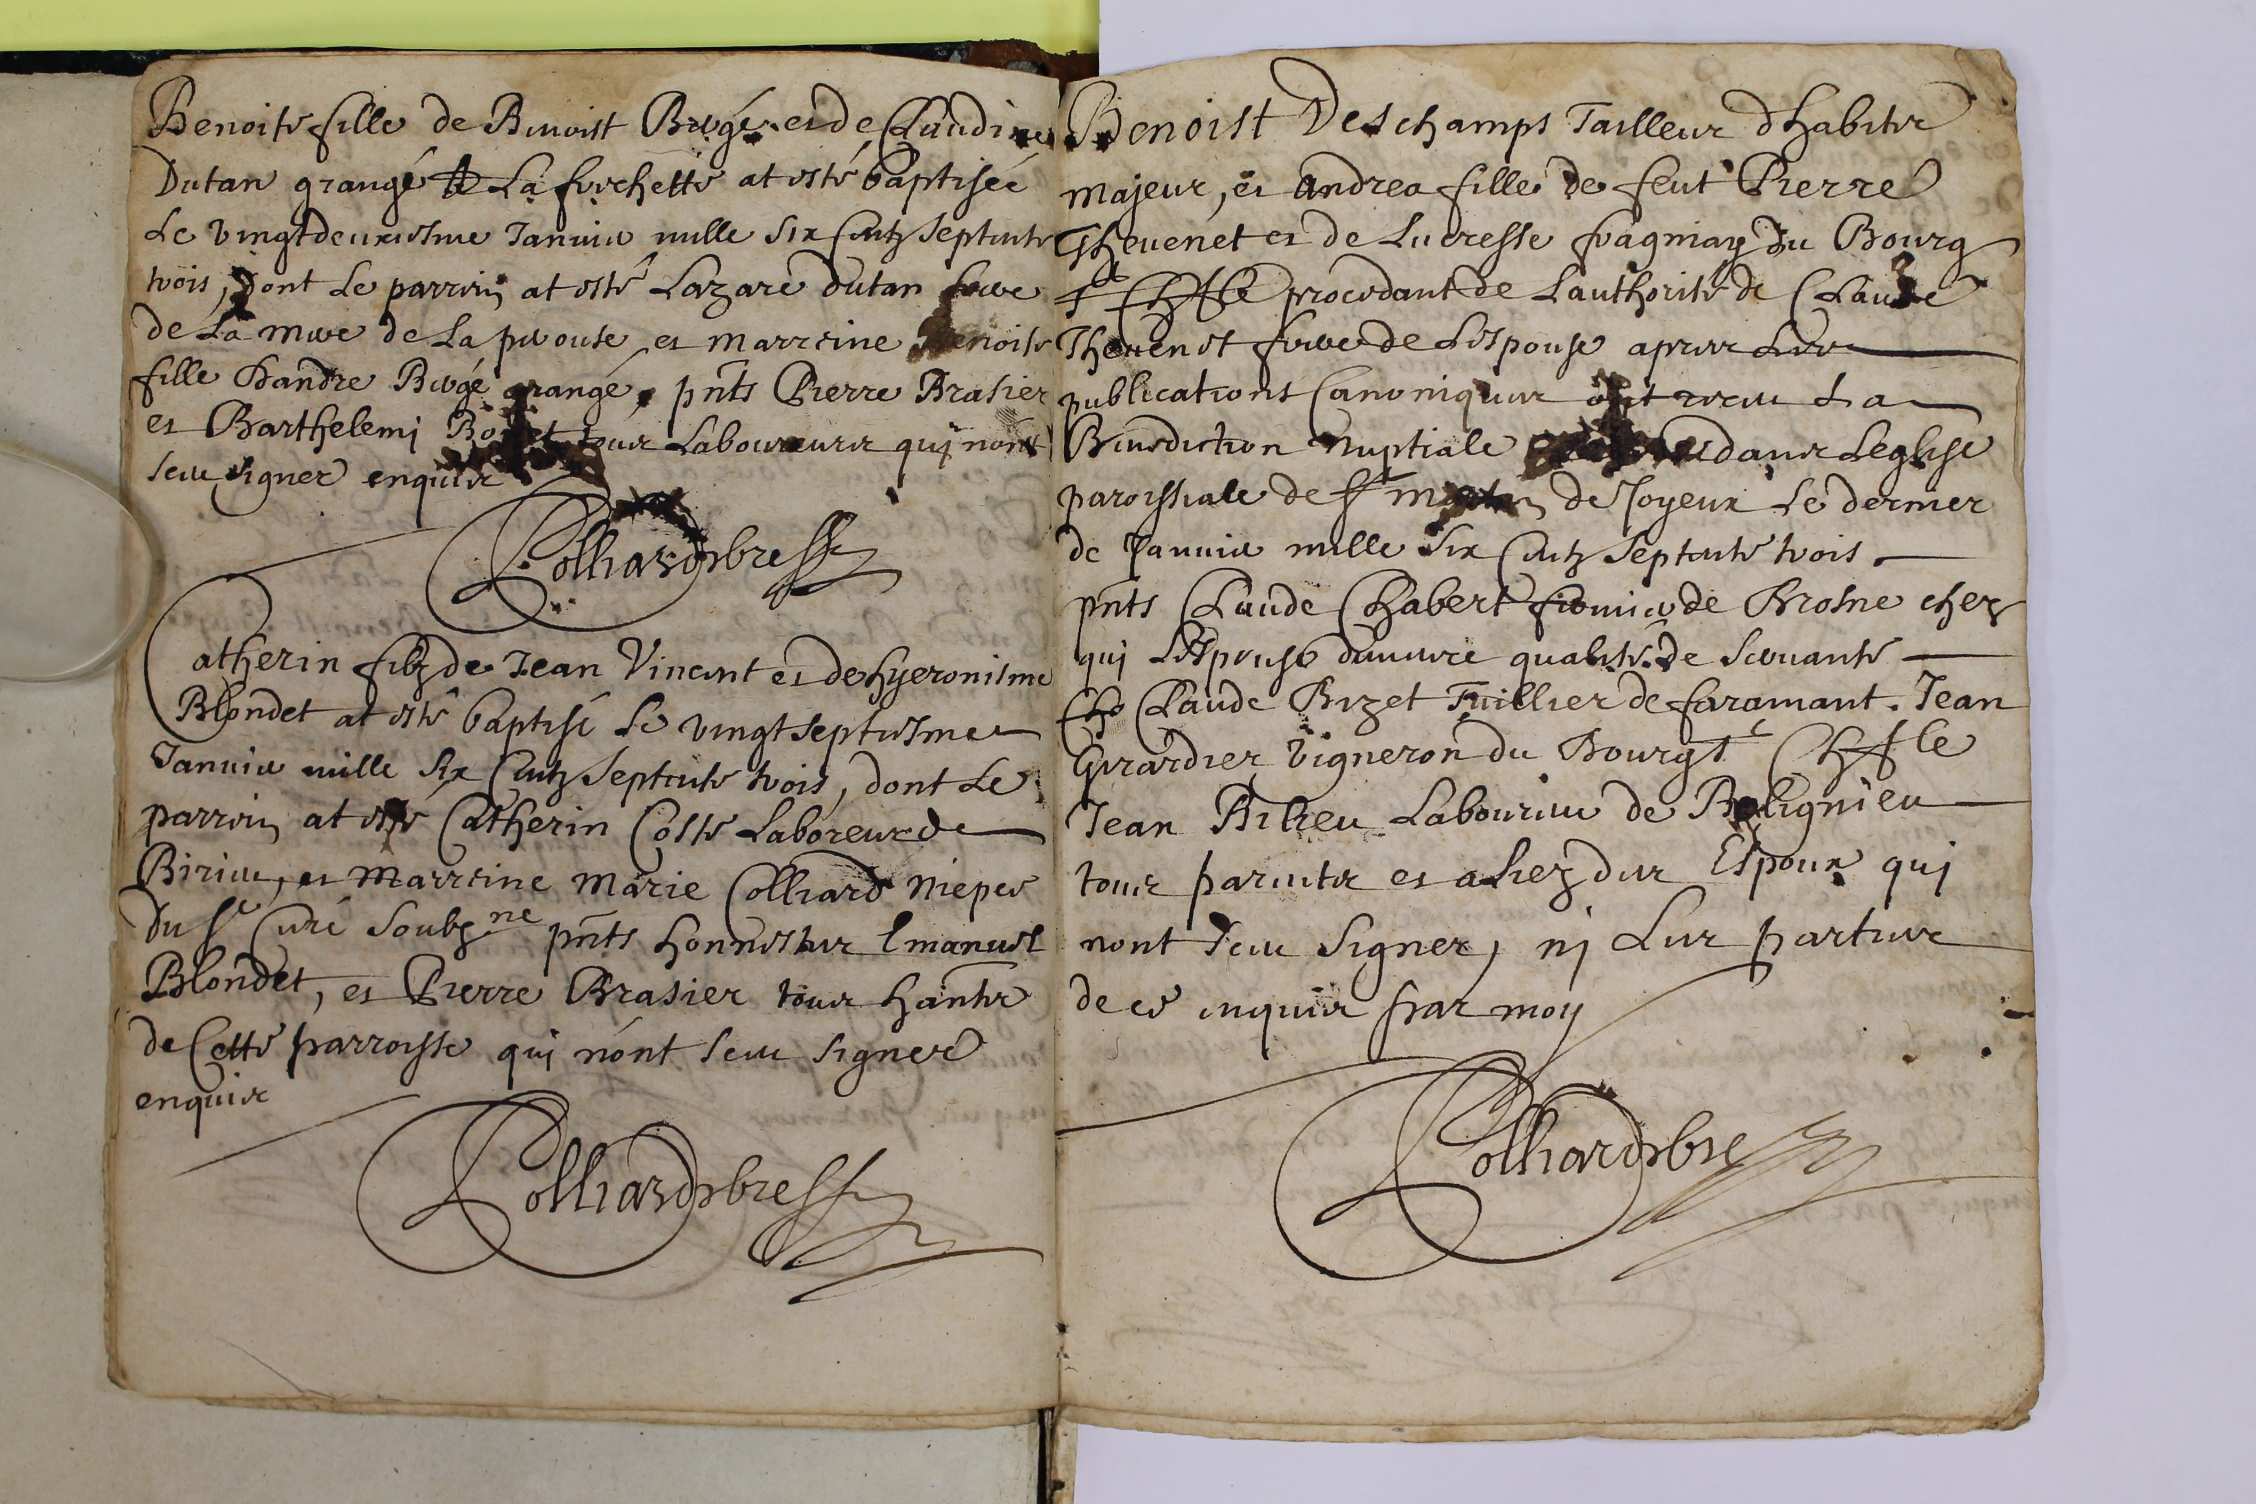 Benoite fille de Benoist Bergé et de Claudine
Dutan grangé de La forchette at esté baptisée
Le vingtdeuxiesme Janvier mille six Centz septente
trois, dont Le parrein at esté Lazare Dutan frere
de La mere de La prvouse et marreine Benoite
fille dandre Bergé grangé, pnts Pierre Brasier
et Barthelemi tous Laboureurs quj nont
sceu signer enquis
Colliard
Catherin filz de Jean Vincent et de hyeronisme
Blondet at esté baptisé Le vingtseptiesme
Janvier mille six Centz septente trois, dont Le
parrein at esté Catherin Coste Laboreur de
Birieu, et marreine Marie Colliard niepce
du Sr Curé soubzne pnts honnestes Emanuel
Blondet, et Pierre Brasier tous hantz
de Cette parroisse qui nont sceu signer
enquis
Colliard
Benoist Deschamps Tailleur dhabitz
majeur, et Andrea fille de feut Pierre
Thevenet et de Lucresse fragniay du Bourg
St Chfle procedant de Lauthorité de Claude
Thevenet frere de Lespouse apres Les
publications Canoniques ont receu La
Benediction nuptiale dans Leglise
paroissiale de St Martin de Joyeux Le dernier
de Janvier mille six Centz septente trois
pnts Claude Chabert fermier de Brosne chez
qui Lespouse demeure qualité de servante
Claude Bizet Tuillier de faramant. Jean
Girardier vigneron du Bourg St Chfle
Jean Bilieu Laboureur de Bolignieu
tous parentz et aliez des Espoux qui
nont sceu signer, nj Les parties
de ce enquis par moy
Colliard